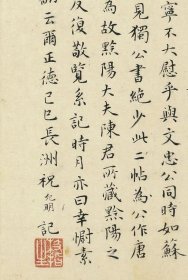 寧不大慰乎與文忠公同時如蘇
見獨公書絶少此二帖為公作唐
為故黔陽大夫陳君所藏黔陽之
反復敬覽系記時月亦曰幸慰素
云爾正德己巳長洲祝允明記